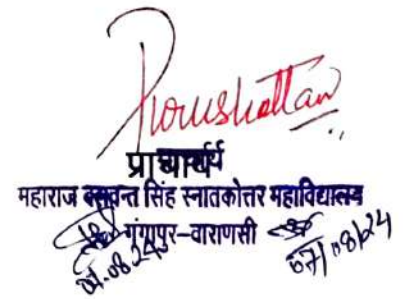 Porushottam
प्राचार्य
महाराज बलवन्त सिंह स्नातकोत्तर महाविद्यालय
गंगापुर-वाराणसी
07.08.24
07/08/24